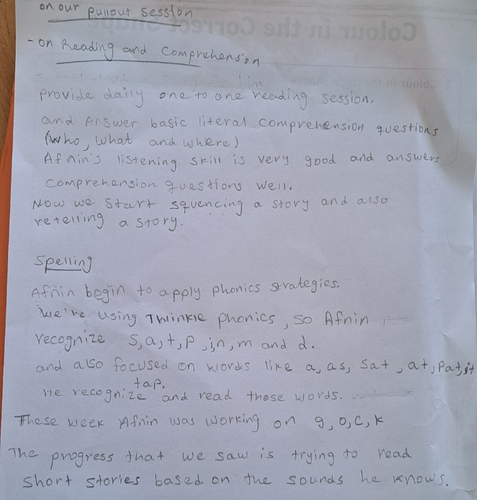 on our pullout session
- on Reading and Comprehension
Colour in the Correct Shape
provide daily one to one reading session.
and Answer basic literal comprehension questions
(who, what and where)
Afnin's listening skill is very good and answers
comprehension questions well.
Now we start squencing a story and also
retelling a story.
Spelling
Afnin begin to apply phonics strategies.
We're using Twinkle phonics, so Afnin
recognize s, a, t, p, i, n, m and d.
and also focused on words like a, as, sat, at, pat, it
tap.
He recognize and read those words.
These week Afnin was working on g, o, c, k
The progress that we saw is trying to read
short stories based on the sounds he knows.